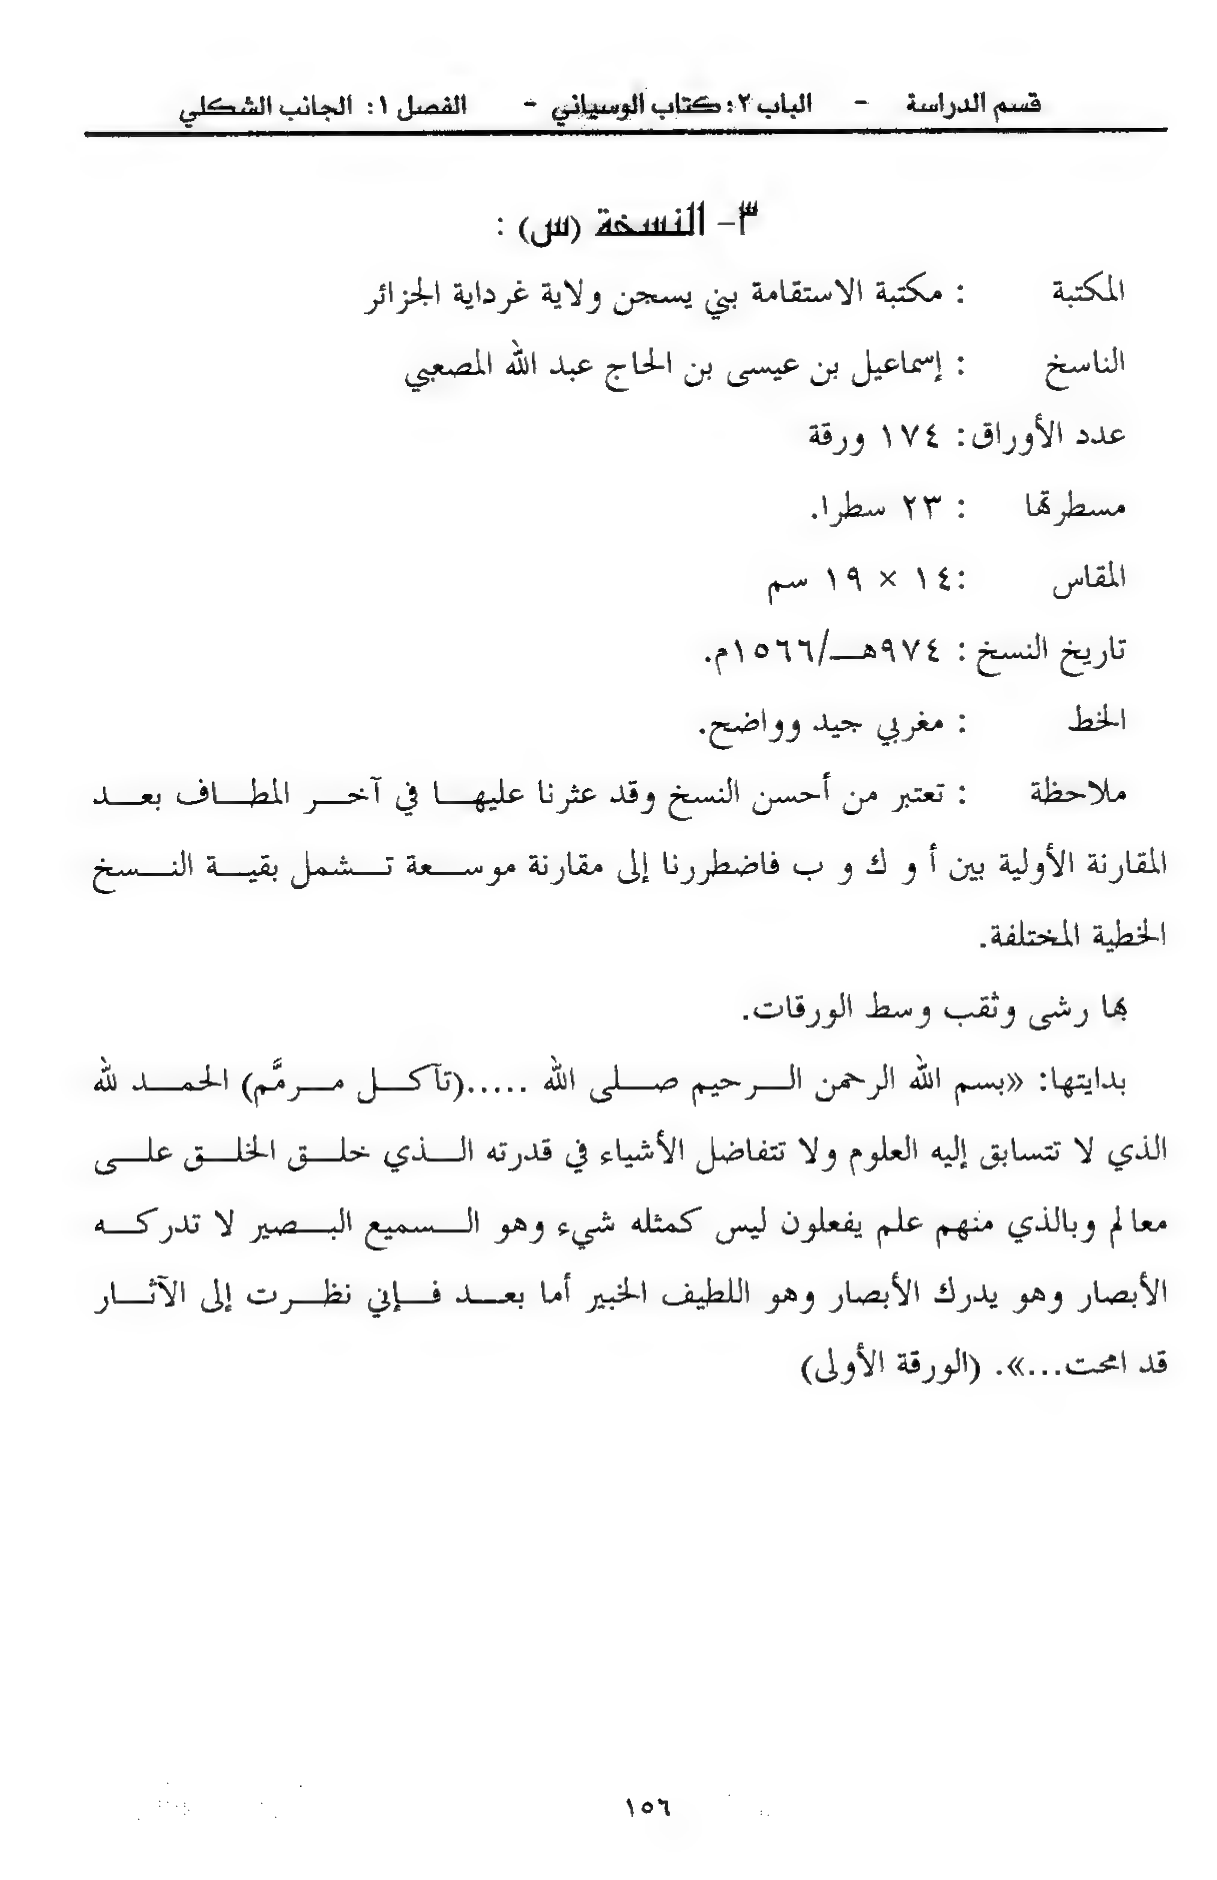 قسم الدراسة - الباب ٢: كتاب الوسياني - الفصل ١: الجانب الشكلي
٣- النسخة (س) :
المكتبة : مكتبة الاستقامة بني يسجن ولاية غرداية الجزائر
الناسخ : إسماعيل بن عيسى بن الحاج عبد الله المصعبي
عدد الأوراق: ١٧٤ ورقة
مسطرتها : ٢٣ سطرا.
المقاس :١٤ × ١٩ سم
تاريخ النسخ : ٩٧٤هــ/١٥٦٦م.
الخط : مغربي جيد وواضح.
ملاحظة : تعتبر من أحسن النسخ وقد عثرنا عليها في آخر المطاف بعد
المقارنة الأولية بين أ و ك و ب فاضطررنا إلى مقارنة موسعة تشمل بقية النسخ
الخطية المختلفة.
بها رشى وثقب وسط الورقات.
بدايتها: «بسم الله الرحمن الرحيم صلى الله .....(تآكل مرمَّم) الحمد لله
الذي لا تتسابق إليه العلوم ولا تتفاضل الأشياء في قدرته الذي خلق الخلق على
معالم وبالذي منهم علم يفعلون ليس كمثله شيء وهو السميع البصير لا تدركه
الأبصار وهو يدرك الأبصار وهو اللطيف الخبير أما بعد فإني نظرت إلى الآثار
قد امحت...». (الورقة الأولى)
١٥٦